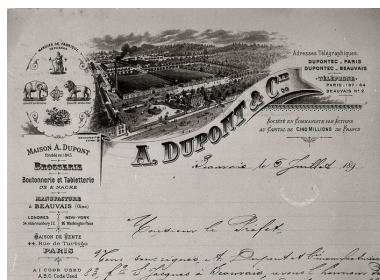 MARQUES DE FABRIQUE
Adresses Télégraphiques:
DUPONTEC - PARIS
DUPONTEC - BEAUVAIS
TÉLÉPHONE
PARIS: 107-64
BEAUVAIS Nº 2
A. DUPONT & Cie
SOCIÉTÉ EN COMMANDITE PAR ACTIONS
AU CAPITAL DE CINQ MILLIONS DE FRANCS
MAISON A. DUPONT
Fondée en 1845
BROSSERIE
Boutonnerie et Tabletterie
OS & NACRE
MANUFACTURE
À BEAUVAIS (Oise)
LONDRES
NEW-YORK
Washington Place
MAISON DE VENTE
44, Rue de Turbigo
PARIS
A I CODE USED
A.B.C Code Used
Beauvais, le 5 Juillet 189
Monsieur le Préfet,
Nous soussignés, A. Dupont et Cie manufacturiers
à Beauvais, avons l'honneur